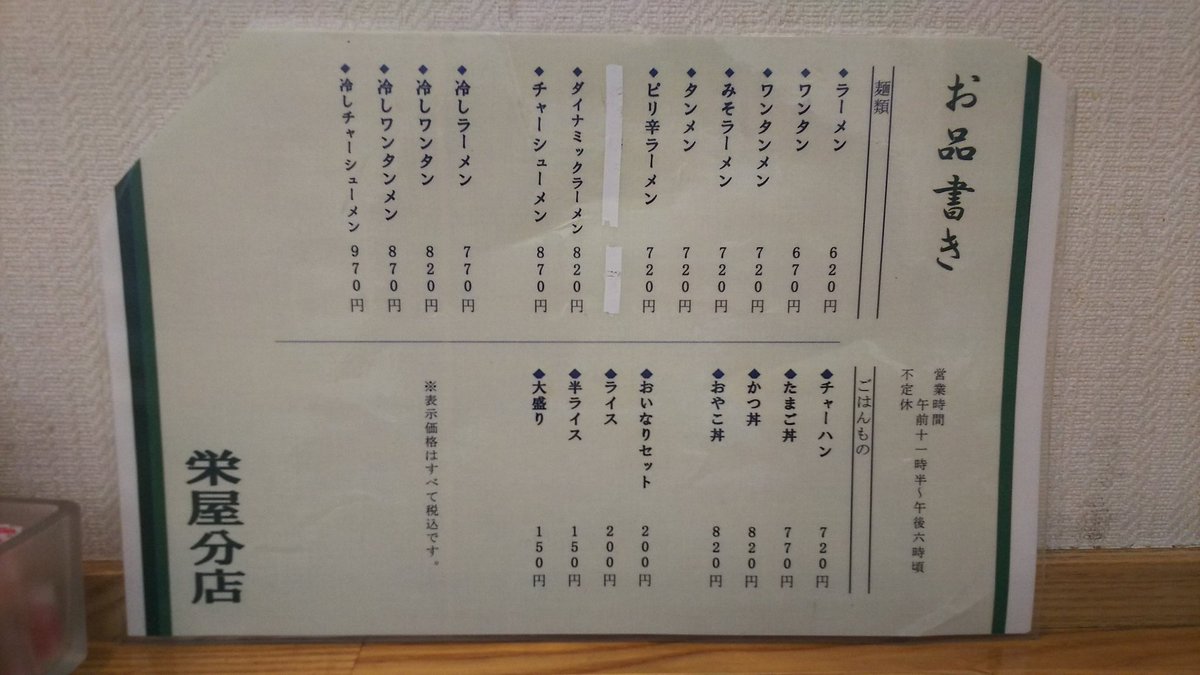 お品書き
営業時間
午前十一時半～午後六時頃
不定休
麺類
◆ラーメン 620円
◆ワンタン 670円
◆ワンタンメン 720円
◆みそラーメン 720円
◆タンメン 720円
◆ピリ辛ラーメン 720円
◆ダイナミックラーメン 820円
◆チャーシューメン 870円
◆冷しラーメン 770円
◆冷しワンタン 820円
◆冷しワンタンメン 870円
◆冷しチャーシューメン 970円
ごはんもの
◆チャーハン 720円
◆たまご丼 770円
◆かつ丼 820円
◆おやこ丼 820円
◆おいなりセット 200円
◆ライス 200円
◆半ライス 150円
◆大盛り 150円
※表示価格はすべて税込です。
栄屋分店